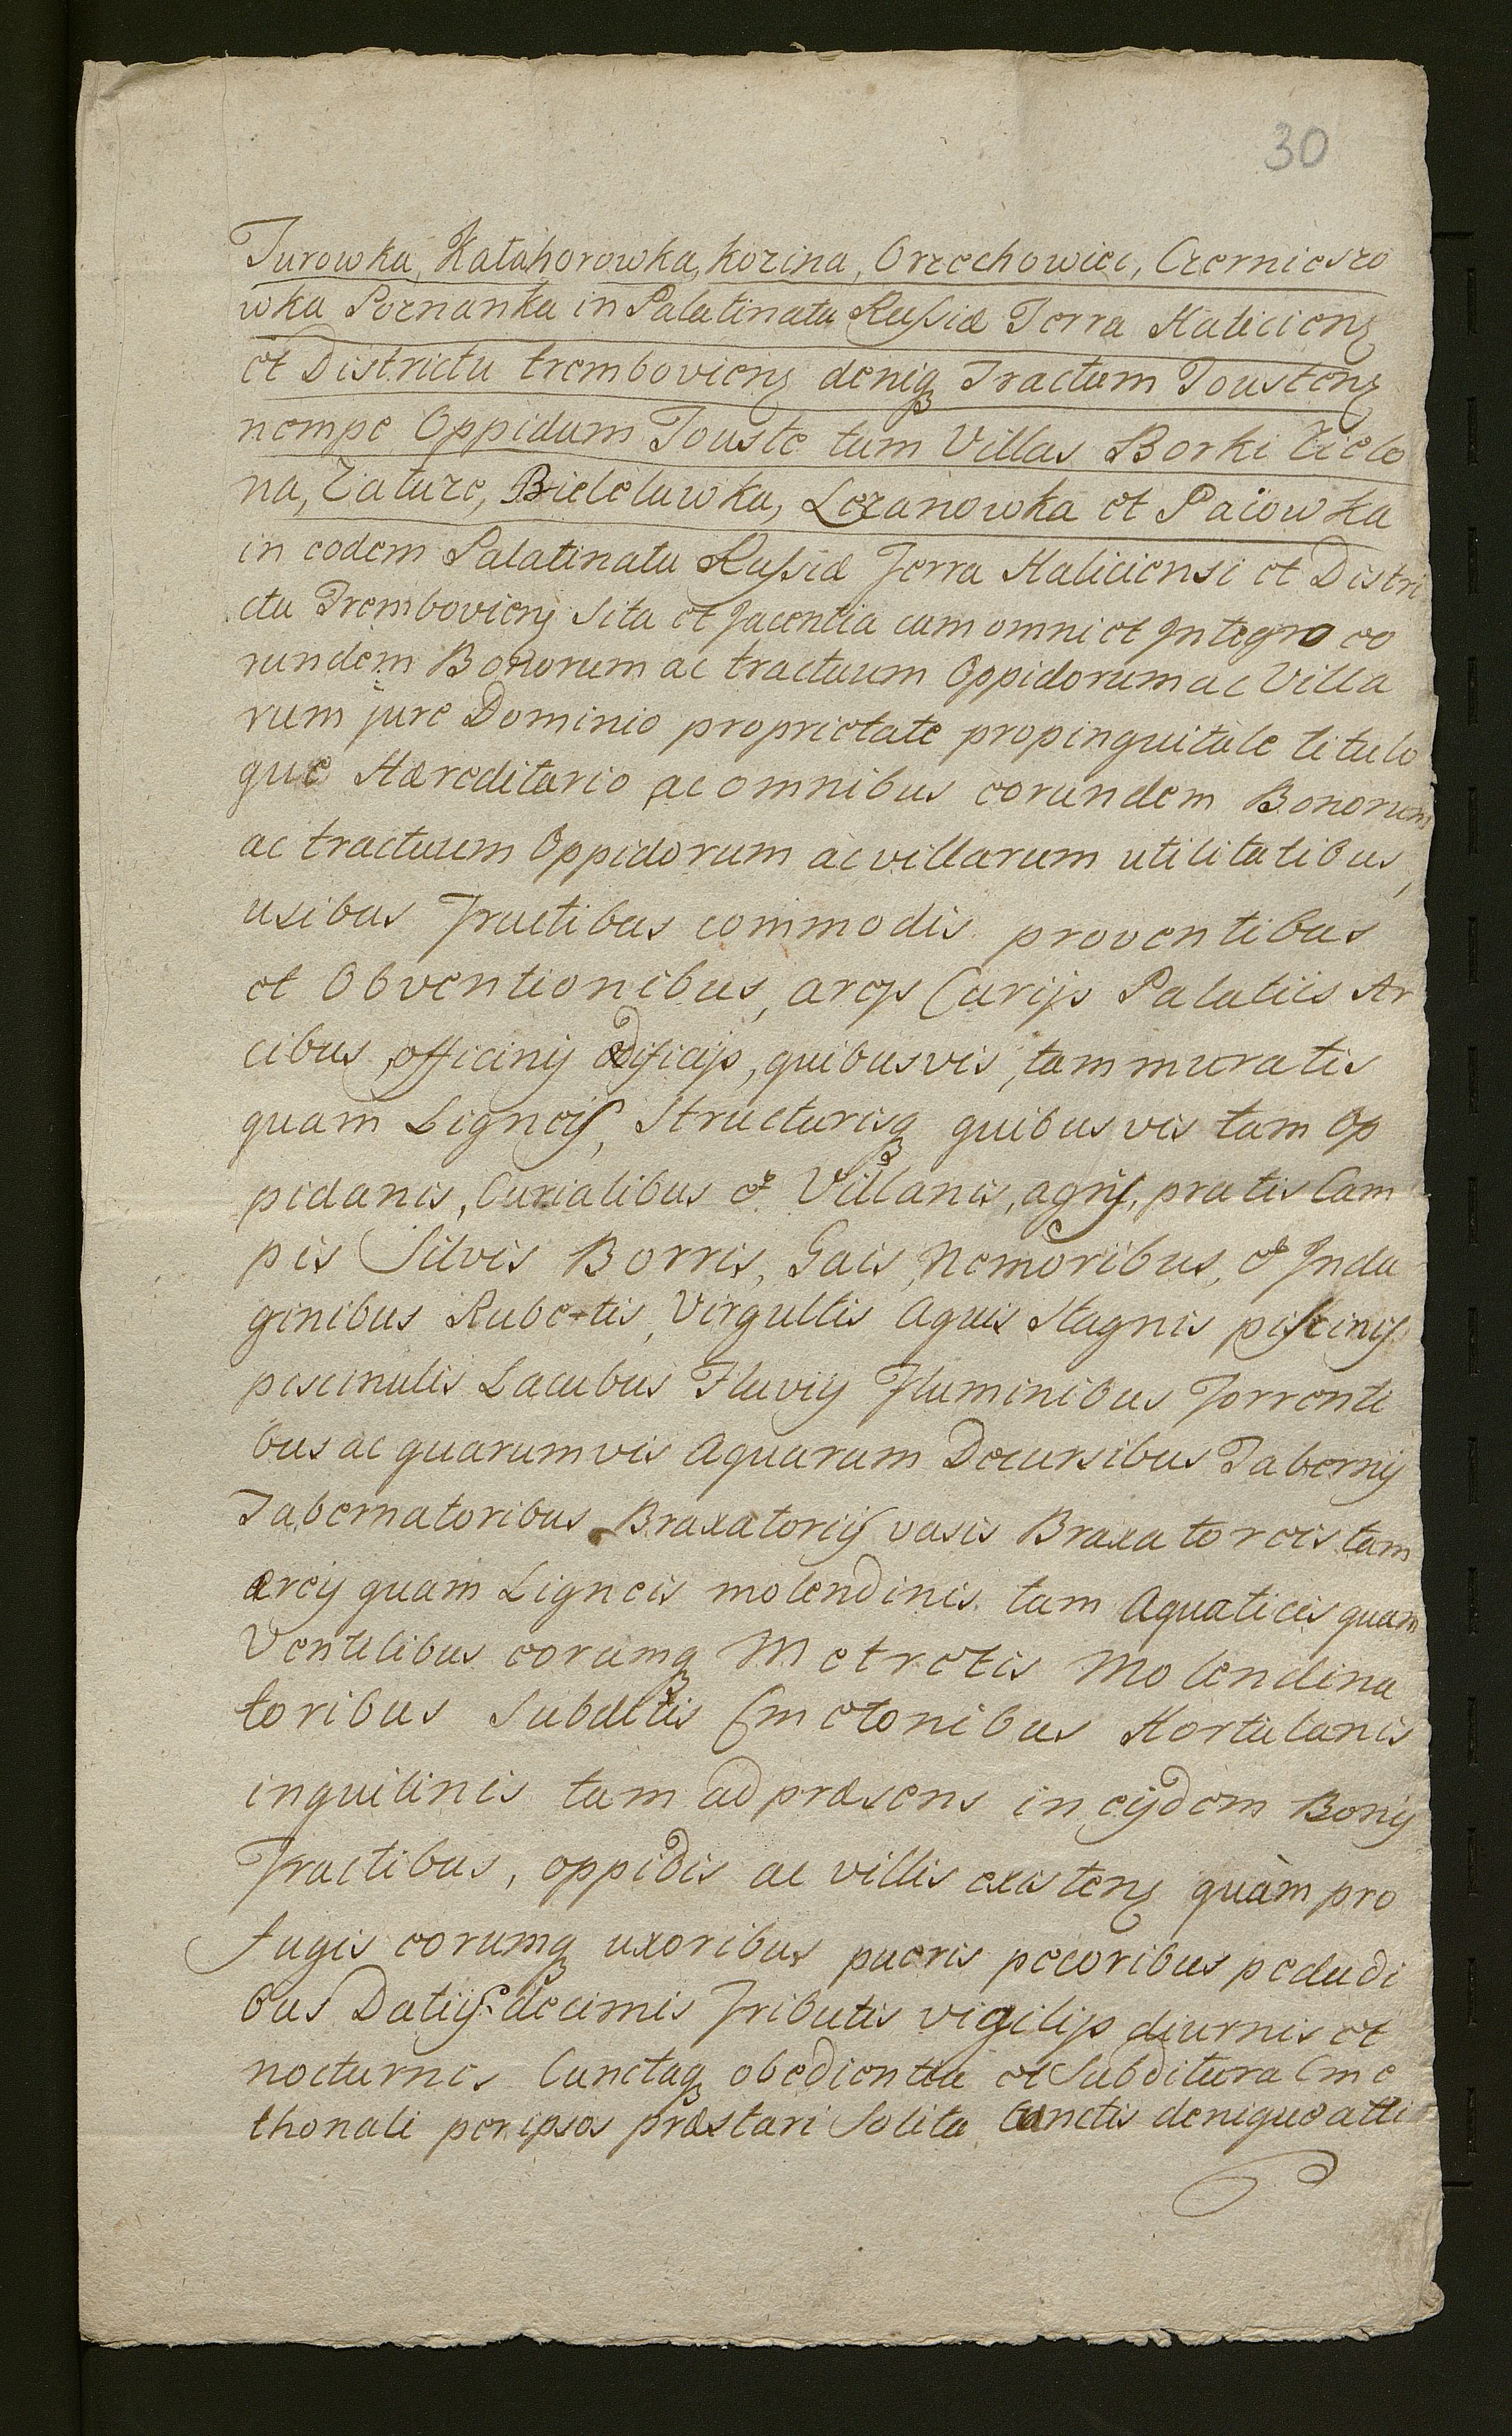 30
Turowka, Katahorowka, kozina, Orzechowici, Czernieszo
wka Poznanka in Palatinatu Russiæ Terra Haliciens
et Districtu trembowiens deniq Tractum Toustens
nempe Oppidum Touste tum Villas Borki Zielo
na, Zaturze, Bieleluwka, Lezanowka et Paiowka
in eodem Palatinatu Russiæ Terra Haliciensi et Distri
ctu Tremboviens sita et Jacentia cum omni et Integro eo
rundem Bonorum ac tractuum Oppidorum ac Villa
rum jure Dominio proprietate propinquitate titulo
que Hæreditario ac omnibus eorundem Bonorum
ac tractuum Oppidorum ac villarum utilitatibus,
usibus Fructibus commodis proventibus
et Obventionibus, areis Curijs Palatiis Ar
cibus, officinis ædificijs, quibusvis, tam muratis
quam Ligneis, Structurisq quibusvis tam Op
pidanis, Curialibus et Villanis, agris, pratis Cam
pis Silvis Borris, Gais, Nemoribus, et Inda
ginibus Rubetis, Virgultis Aquis Stagnis piscinis
piscinulis Lacubus Fluvijs Fluminibus Torrenti
bus ac quarumvis Aquarum Decursibus Tabernis
Tabernatoribus Braxatorijs vasis Braxatoreis tam
æreis quam Ligneis molendinis tam Aquaticis quam
Ventilibus eorumq Metretis Molendina
toribus Subditis Cmetonibus Hortulanis
inquilinis tam ad præsens in eisdem Bonis
Tractibus, oppidis ac villis existens quàm pro
fugis eorumq uxoribus pueris pecoribus peludi
bus Datijs decimis Tributis vigilijs diurnis et
nocturnis Cunctaq obedientia et Subditura Cme
thonali per ipsos præstari Solita Cunctis denique atti